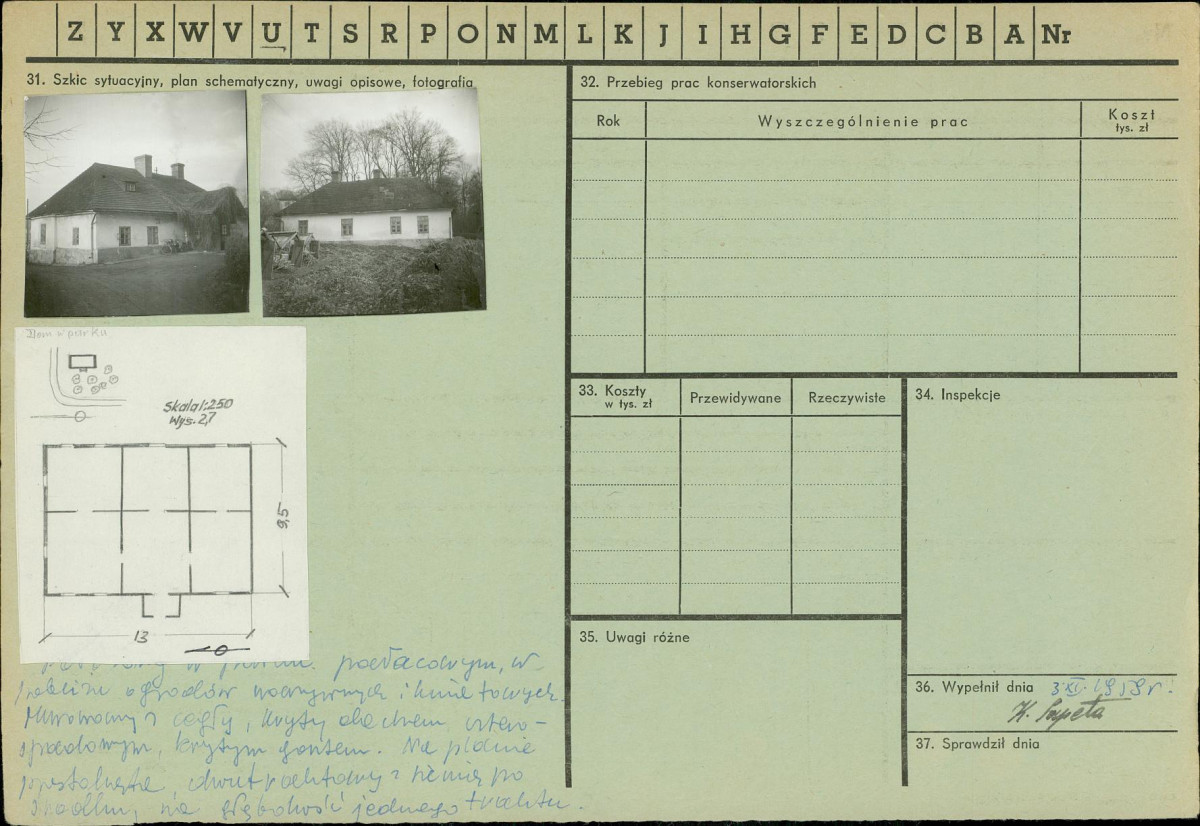 Z Y X W V U T S R P O N M L K J I H G F E D C B A Nr
31. Szkic sytuacyjny, plan schematyczny, uwagi opisowe, fotografia
Skala 1:250
Wys. 2,7
9,5
13
podłacowym, w
ogrodów warzywnych i kwiatowych.
Murowany z cegły, kryty dachem cztero-
spadowym, krytym gontem. Na planie
prostokąta, dwutraktowy z sienią po
środku, na głębokość jednego traktu.
32. Przebieg prac konserwatorskich
Rok
Wyszczególnienie prac
Koszt
tys. zł
33. Koszty
w tys. zł
Przewidywane
Rzeczywiste
34. Inspekcje
35. Uwagi różne
36. Wypełnił dnia 3.XI.1959 r.
37. Sprawdził dnia